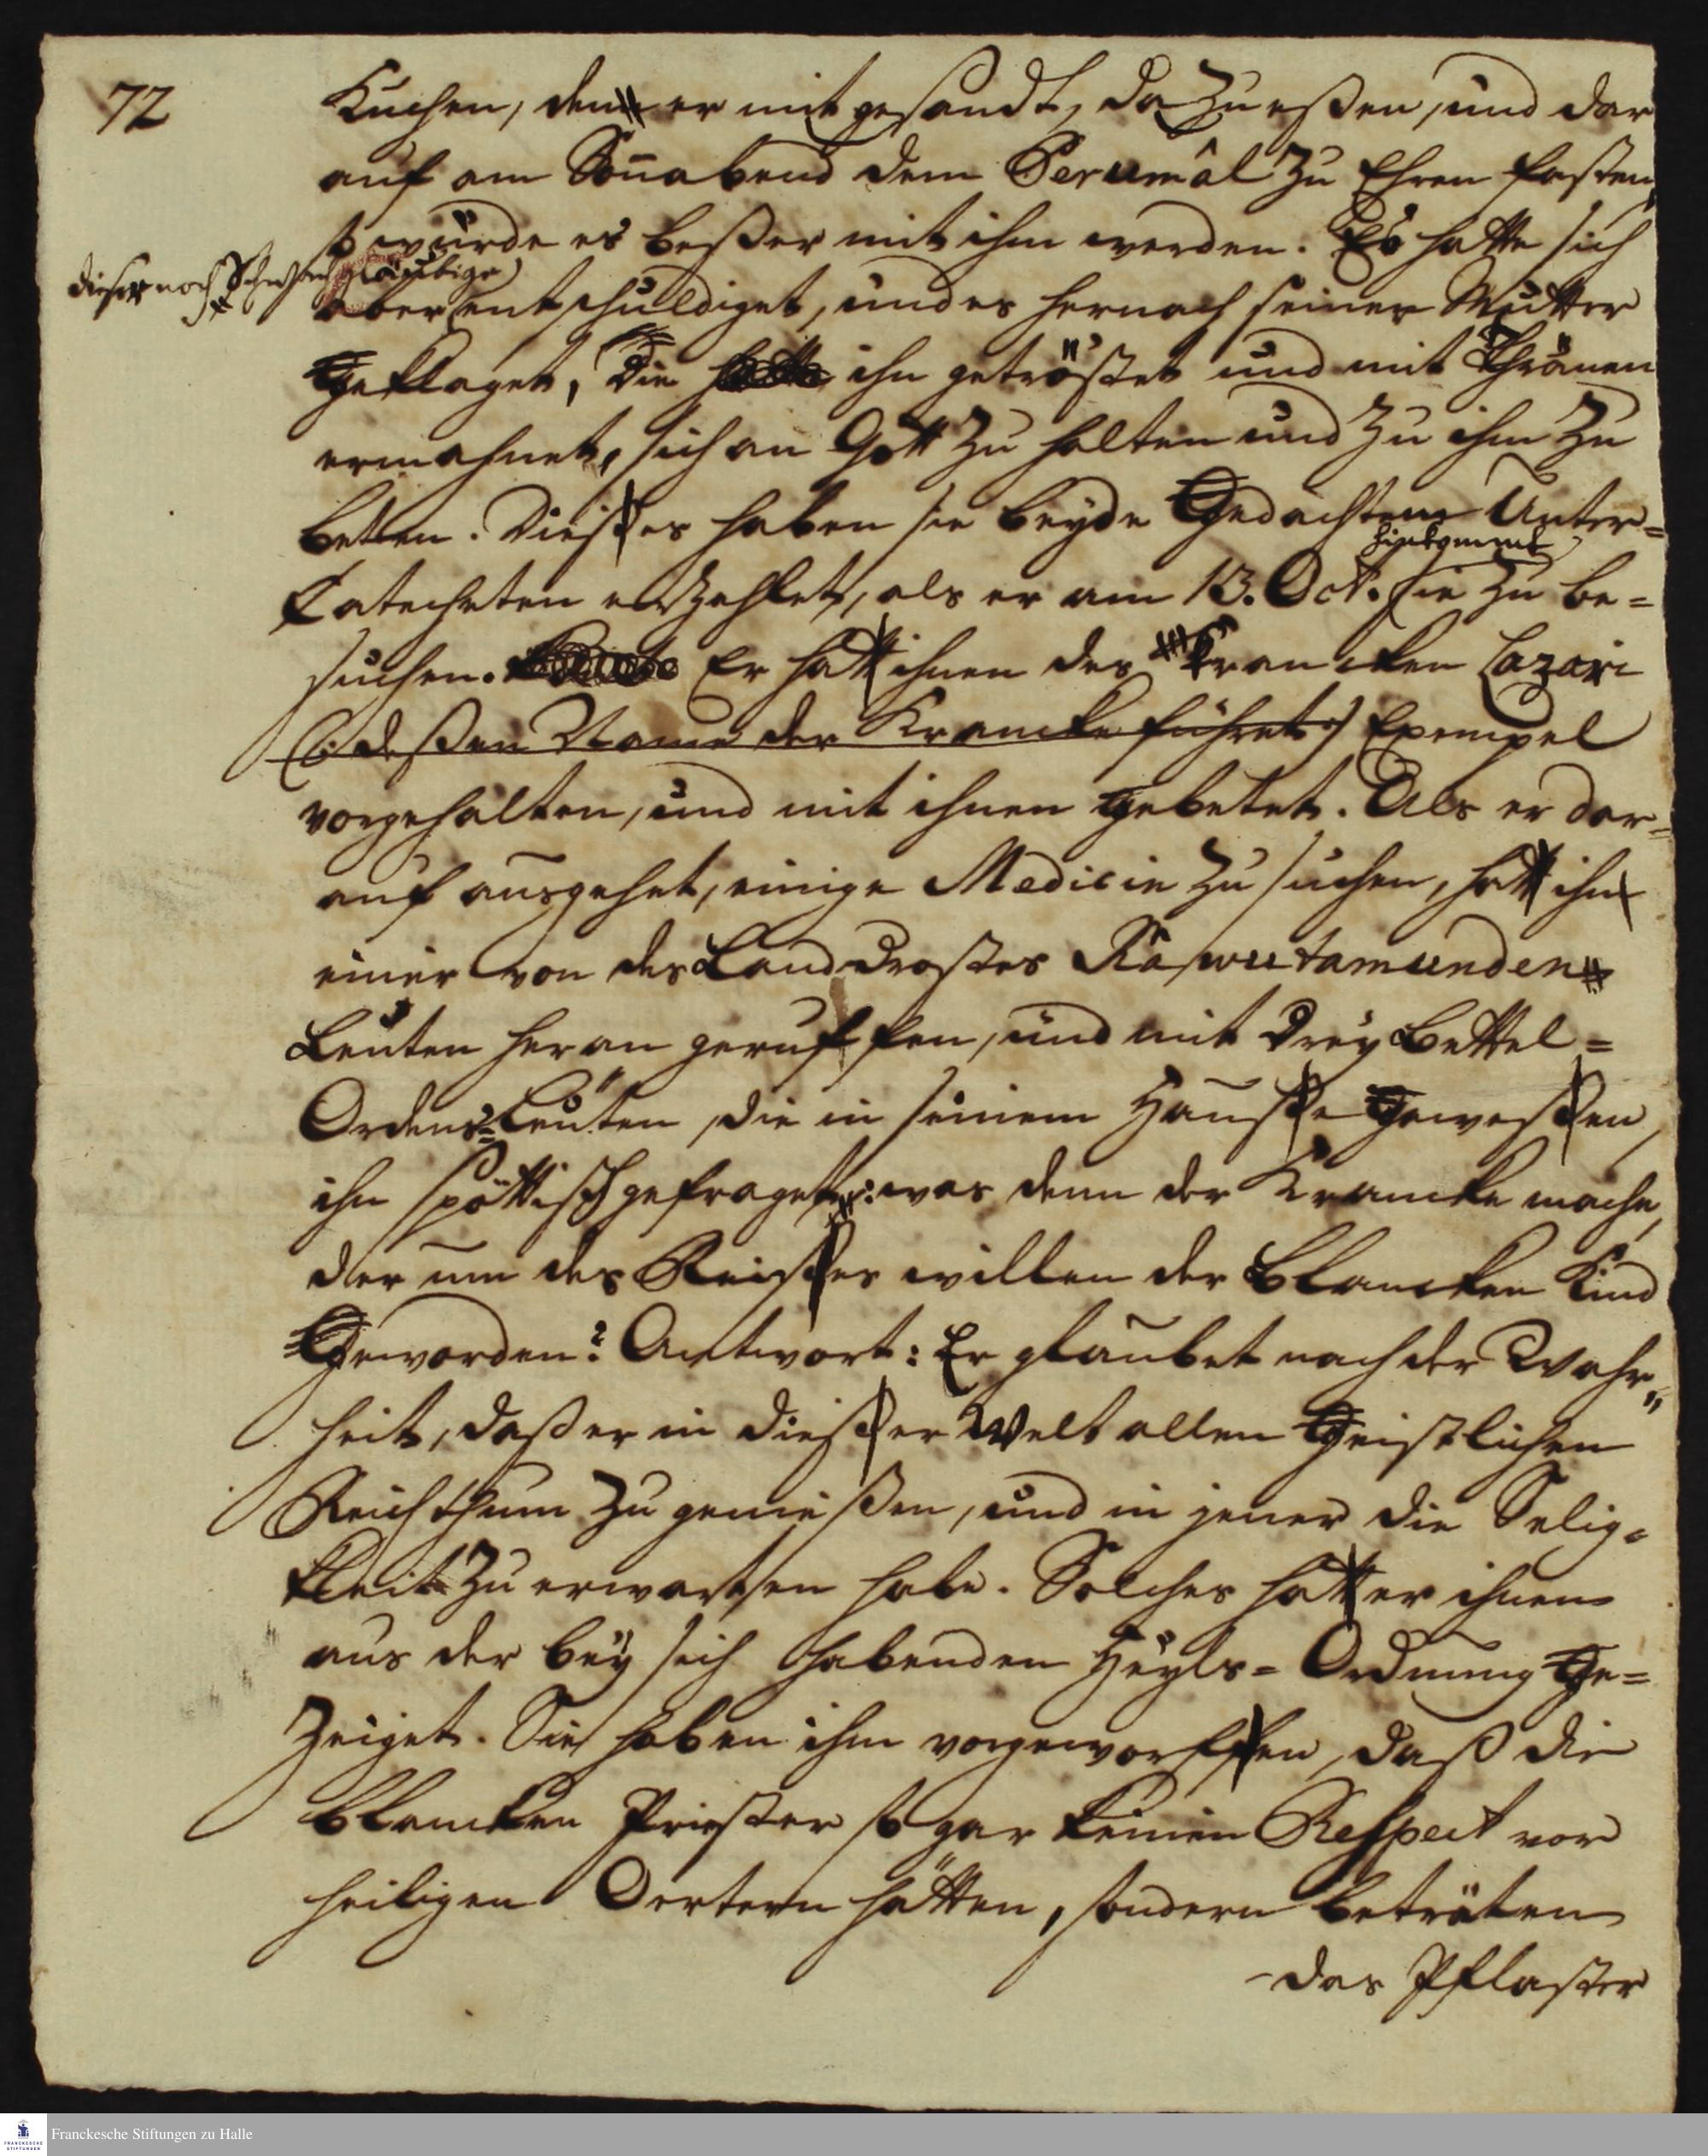 72
Kuchen, den er mit gesandt, da zu eßen, und dar
auf am Soñabend dem Perumâl zu Ehren fasten,
so würde es beßer mit ihm werden. Es hatte sich
dieser noch Schwachgläubige
aber entschuldiget, und es hernach seiner Mutter
geklaget, die ihn getröstet und mit Thränen
ermahnet, sich an Gott zu halten und zu ihm zu
beten. Dieses haben sie beyde Gedachtem Unter=
hinkommt
Catecheten erzehlet, als er am 13. Oct. sie zu be=
suchen. Er hat ihnen des Krancken Lazari
(: deßen Name der Krancke führet :) Exempel
vorgehalten, und mit ihnen gebetet. Als er dar=
auf ausgehet, einige Medicin zu suchen, hat ihn
einer von des Landdrostes Râwutamunden
Leuten heran geruffen, und mit drey Bettel=
Ordens=Leuten, die in seinem Hause gewesen,
ihn spöttisch gefraget: was denn der Krancke mache,
der um des Reises willen der Blancken Kind
Geworden? Antwort: Er glaubet nach der Wahr=
heit, daß er in dieser Welt allen Geistlichen
Reichthum zu genießen, und in jener die Selig=
keit zu erwarten habe. Solches hat er ihnen
aus der bey sich habenden Heyls=Ordnung ge=
zeiget. Sie haben ihm vorgeworfen, daß die
blancken Priester so gar keinen Respect vor
heiligen Oertern hätten, sondern beträten
das Pflaster
Franckesche Stiftungen zu Halle